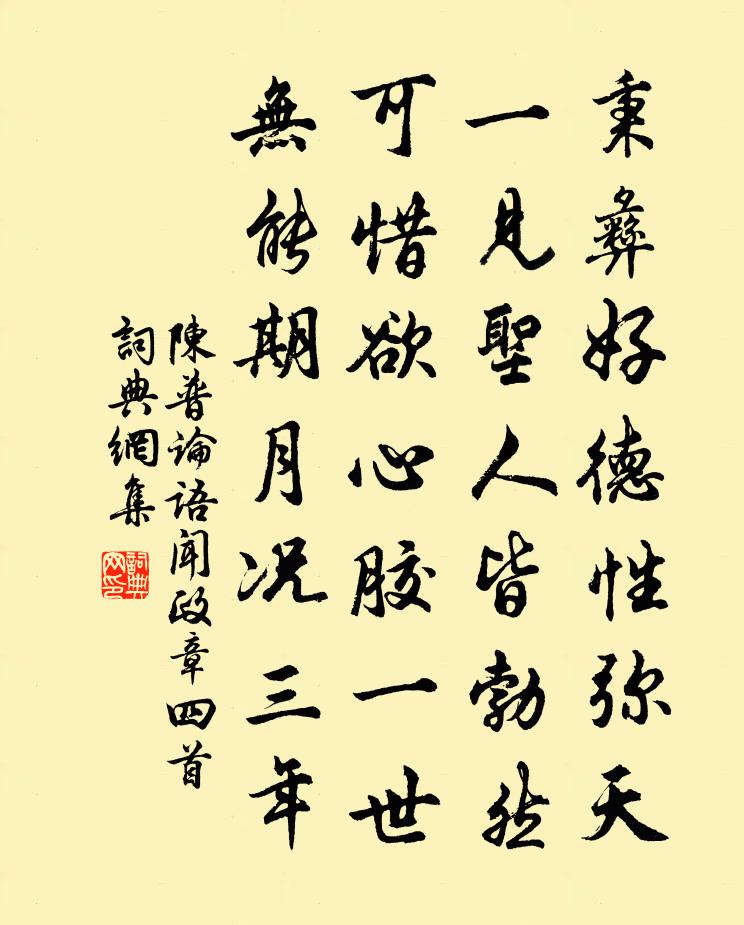 秉彝好德性弥天
一見聖人皆勃然
可惜欲心膠一世
無能期月况三年
陳普論語聞政章四首
詞典網集
詞典网印